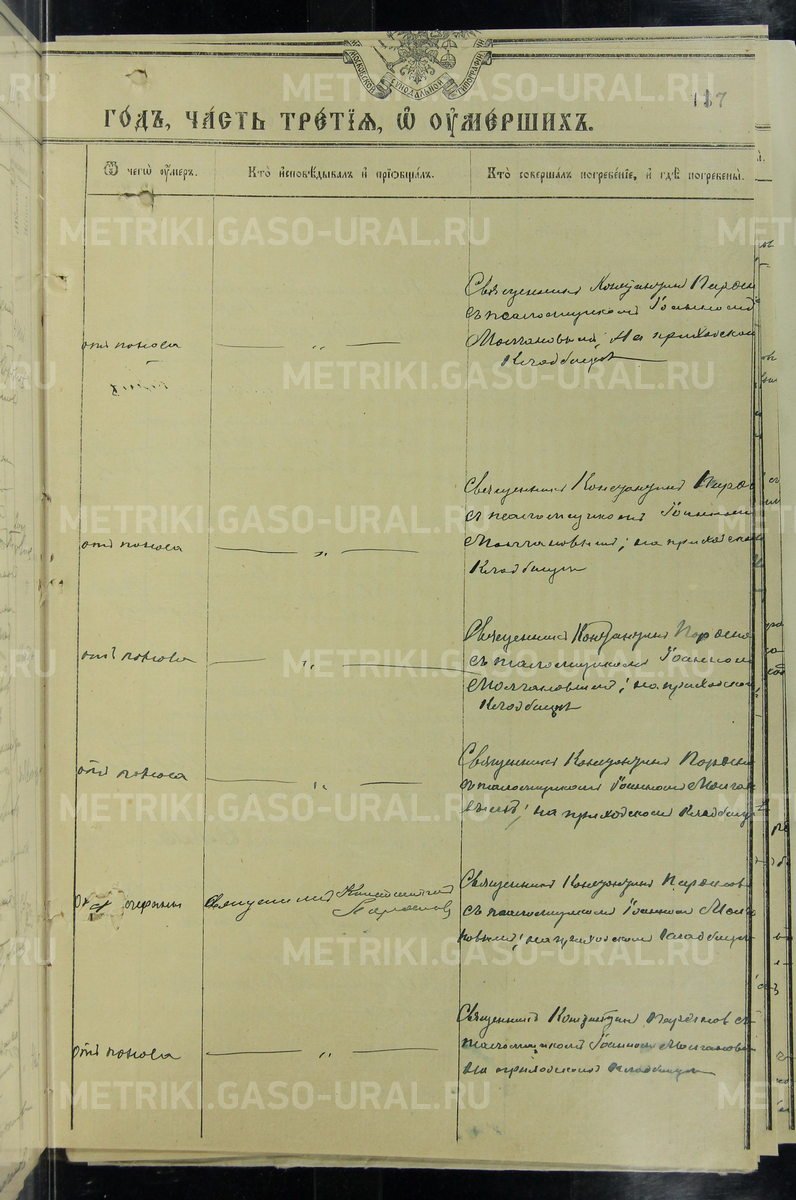 МОСКОВСКОЙ СѴНОДАЛЬНОЙ ТИПОГРАФІИ
187
ГО́ДЪ, ЧА́СТЬ ТРЕ́ТІѦ, Ѡ҆ ОУ҆МЕ́РШИХЪ.
Ѿ чегѡ̀ оу҆́меръ.
Кто̀ и҆сповѣ́дывалъ и҆ прїѡбща́лъ.
Кто̀ соверша́лъ погребе́нїе, и҆ гдѣ̀ погребены̀.
отъ поноса
Священникъ Констант
съ псаломщикомъ Іоанномъ
Молчановымъ, на приходском
кладбищѣ
отъ поноса
Священникъ Константинъ
съ псаломщикомъ Іоанномъ
Молчановымъ; на приходском
кладбищѣ
отъ поноса
Священникъ Константинъ
съ псаломщикомъ Іоанномъ
Молчановымъ; на приходском
кладбищѣ
отъ поноса
Священникъ Константинъ
съ псаломщикомъ Іоанномъ Молчано
вымъ; на приходскомъ кладбищѣ
Священникъ Константинъ
Священникъ Константинъ
съ псаломщикомъ Іоанномъ Молча
новымъ; на приходскомъ кладбищѣ
отъ поноса
Священникъ Константинъ съ
псаломщикомъ Іоанномъ Молчановы
на приходскомъ кладбищѣ
METRIKI.GASO-URAL.RU